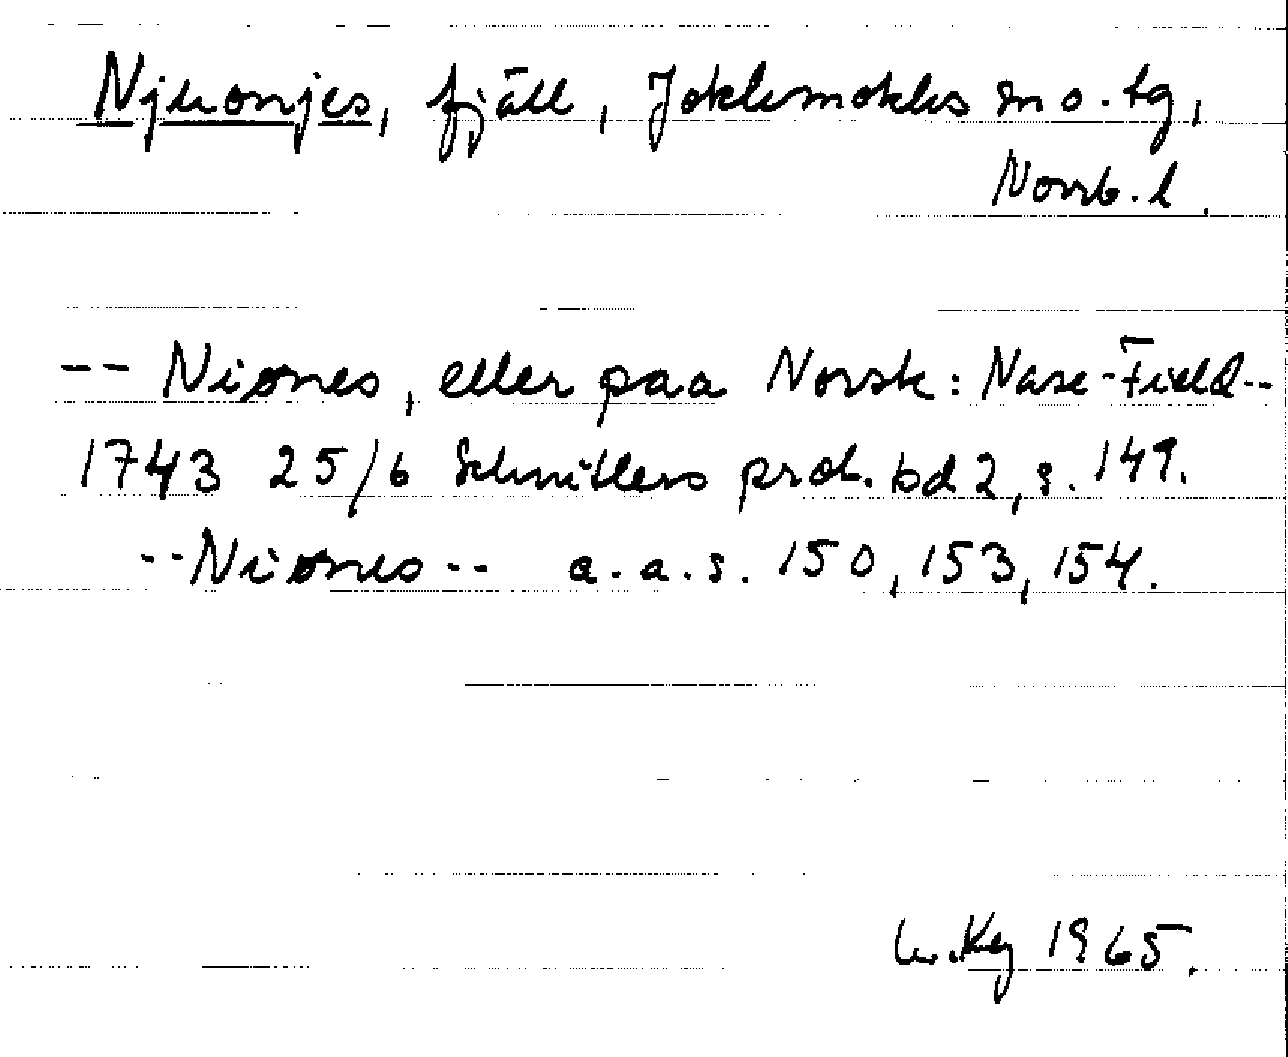 Njuonjes, fjäll, Jokkmokks sn o. tg,
Norrb. l.
-- Niønes, eller paa Norsk: Nase-Field--
1743 25/6 Schnitlers prot. bd 2, s. 149.
--Niønes-- a.a.s. 150, 153, 154.
1965.